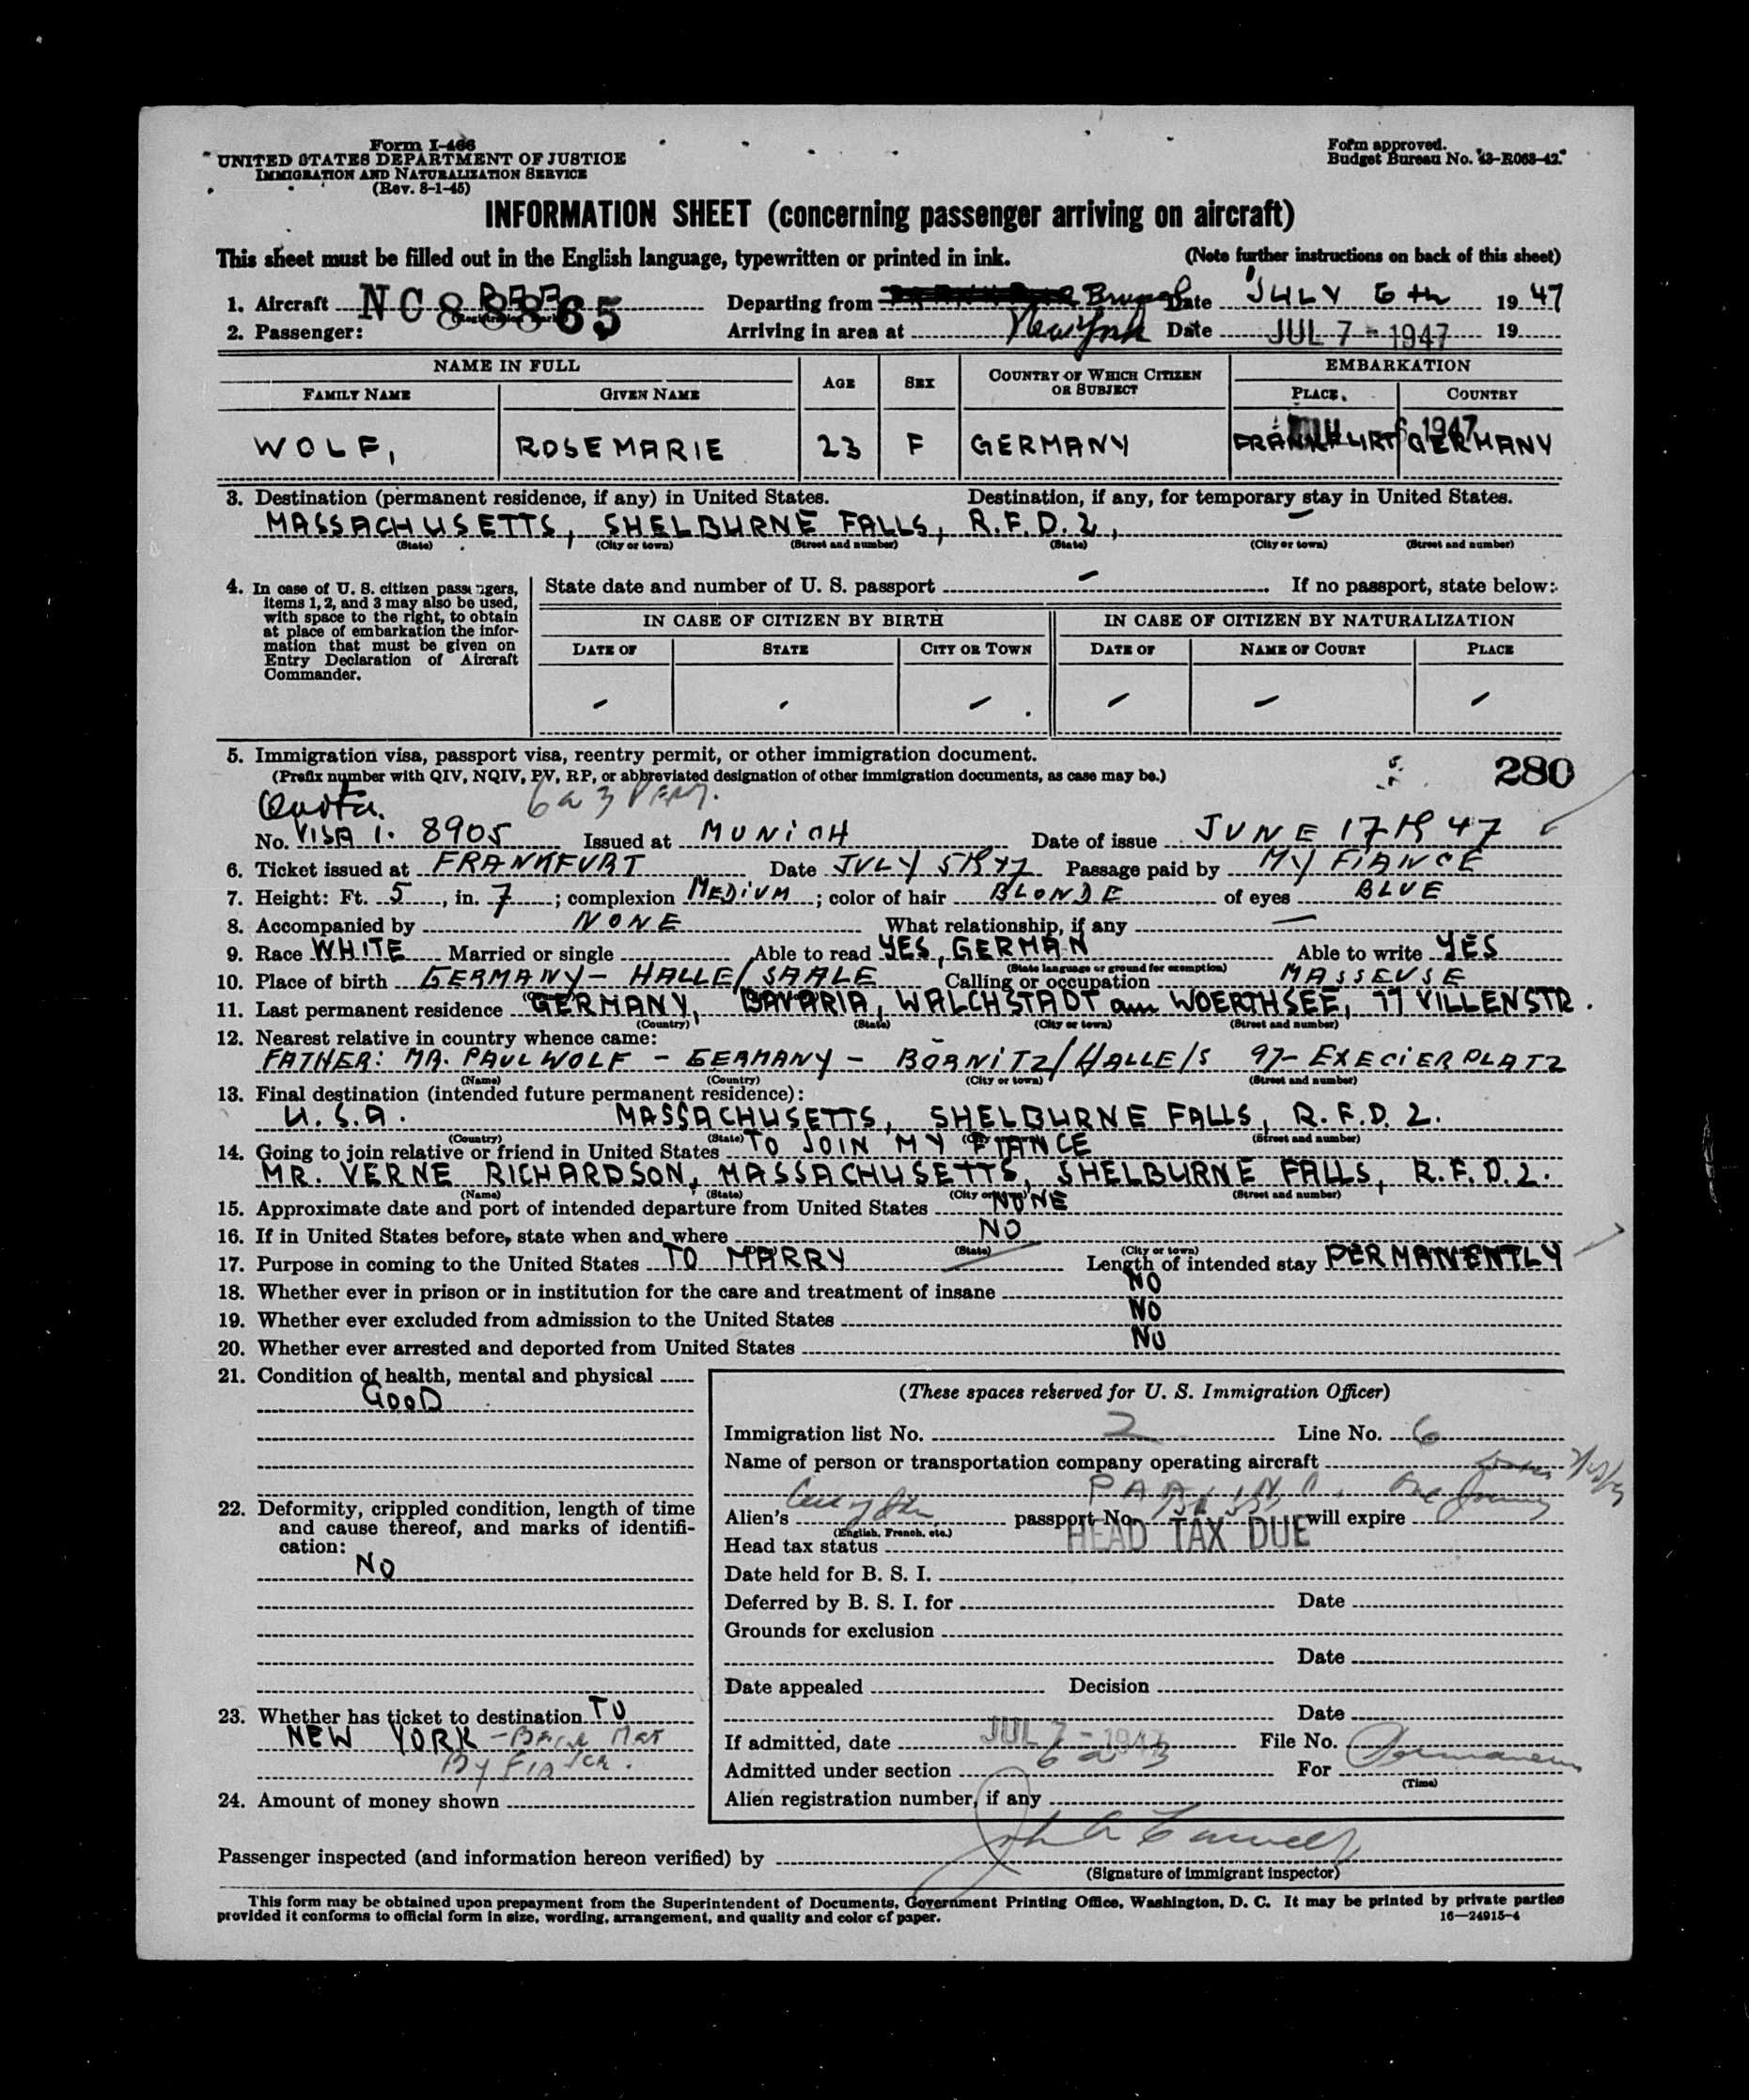 Form I-466
UNITED STATES DEPARTMENT OF JUSTICE
IMMIGRATION AND NATURALIZATION SERVICE
(Rev. 8-1-45)
Form approved.
Budget Bureau No. 43-R063-42.
INFORMATION SHEET (concerning passenger arriving on aircraft)
This sheet must be filled out in the English language, typewritten or printed in ink. (Note further instructions on back of this sheet)
1. Aircraft NC 88865 Departing from Date JULY 6th 1947
2. Passenger: Arriving in area at New York Date JUL 7 - 1947 19
NAME IN FULL AGE SEX COUNTRY OF WHICH CITIZEN OR SUBJECT EMBARKATION
FAMILY NAME GIVEN NAME PLACE COUNTRY
WOLF, ROSEMARIE 23 F GERMANY FRANKFURT GERMANY
3. Destination (permanent residence, if any) in United States. Destination, if any, for temporary stay in United States. –
MASSACHUSETTS, SHELBURNE FALLS, R.F.D.2,
(State) (City or town) (Street and number) (State) (City or town) (Street and number)
4. In case of U. S. citizen passengers, items 1, 2, and 3 may also be used, with space to the right, to obtain at place of embarkation the information that must be given on Entry Declaration of Aircraft Commander.
State date and number of U. S. passport – If no passport, state below:
IN CASE OF CITIZEN BY BIRTH IN CASE OF CITIZEN BY NATURALIZATION
DATE OF STATE CITY OR TOWN DATE OF NAME OF COURT PLACE
– – – – – –
5. Immigration visa, passport visa, reentry permit, or other immigration document.
(Prefix number with QIV, NQIV, PV, RP, or abbreviated designation of other immigration documents, as case may be.) 280
Quota 6a3
No. VISA 1. 8905 Issued at MUNICH Date of issue JUNE 17 1947
6. Ticket issued at FRANKFURT Date JULY 5 1947 Passage paid by MY FIANCE
7. Height: Ft. 5, in. 7; complexion MEDIUM; color of hair BLONDE of eyes BLUE
8. Accompanied by NONE What relationship, if any —
9. Race WHITE Married or single Able to read YES, GERMAN Able to write YES
(State language or ground for exemption)
10. Place of birth GERMANY – HALLE/SAALE Calling or occupation MASSEUSE
11. Last permanent residence GERMANY, BAVARIA, WALCHSTADT am WOERTHSEE, 77 VILLENSTR.
(Country) (State) (City or town) (Street and number)
12. Nearest relative in country whence came:
FATHER: MR. PAUL WOLF – GERMANY – BÖRNITZ/HALLE/S 97– EXECIERPLATZ
(Name) (Country) (City or town) (Street and number)
13. Final destination (intended future permanent residence):
U.S.A. MASSACHUSETTS, SHELBURNE FALLS, R.F.D.2.
(Country) (State) (City or town) (Street and number)
14. Going to join relative or friend in United States TO JOIN MY FIANCE
MR. VERNE RICHARDSON, MASSACHUSETTS, SHELBURNE FALLS, R.F.D.2.
(Name) (State) (City or town) (Street and number)
15. Approximate date and port of intended departure from United States NONE
16. If in United States before, state when and where NO
(State) (City or town)
17. Purpose in coming to the United States TO MARRY Length of intended stay PERMANENTLY
18. Whether ever in prison or in institution for the care and treatment of insane NO
19. Whether ever excluded from admission to the United States NO
20. Whether ever arrested and deported from United States NO
21. Condition of health, mental and physical
GOOD
22. Deformity, crippled condition, length of time and cause thereof, and marks of identification:
NO
23. Whether has ticket to destination TO
NEW YORK
24. Amount of money shown
(These spaces reserved for U. S. Immigration Officer)
Immigration list No. 2 Line No. 6
Name of person or transportation company operating aircraft
P A A INC.
Alien's passport No. will expire
(English, French, etc.)
Head tax status HEAD TAX DUE
Date held for B. S. I.
Deferred by B. S. I. for Date
Grounds for exclusion
Date
Date appealed Decision
Date
If admitted, date JUL 7 - 1947 File No.
Admitted under section 6a3 For Permanent
(Time)
Alien registration number, if any
Passenger inspected (and information hereon verified) by
(Signature of immigrant inspector)
This form may be obtained upon prepayment from the Superintendent of Documents, Government Printing Office, Washington, D. C. It may be printed by private parties
provided it conforms to official form in size, wording, arrangement, and quality and color of paper. 16—24915-4